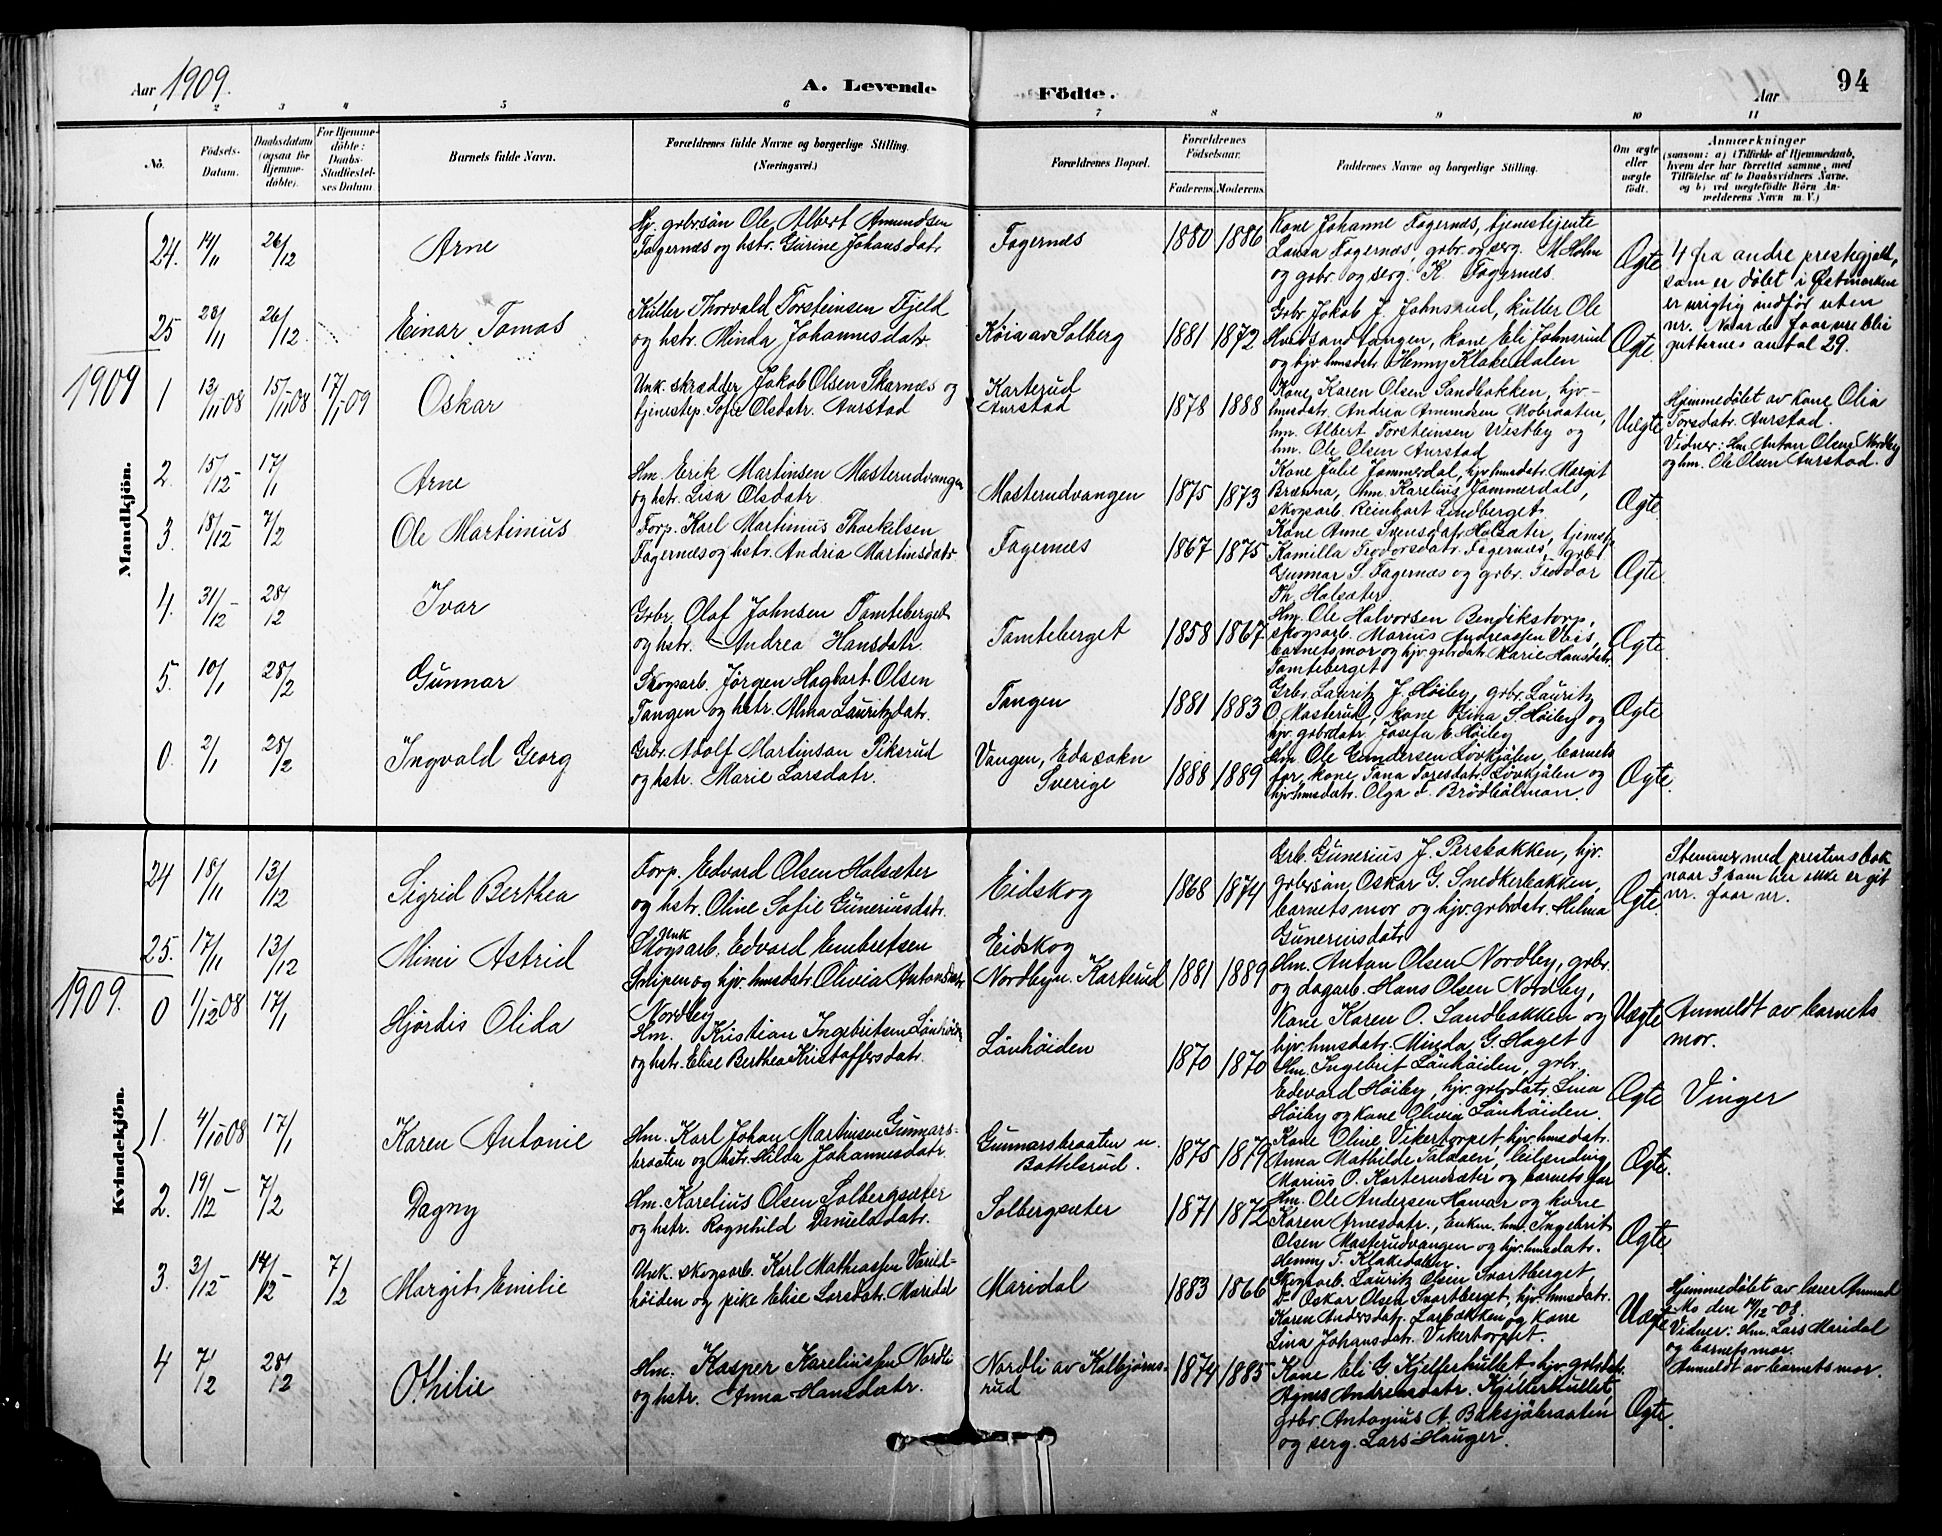 94
Aar 1909.
A. Levende
Födte.
Aar
1 2 3 4 5 6 7 8 9 10 11
No.
Födsels-Datum.
Daabsdatum (ogsaa for Hjemme-döbte).
For Hjemme-döbte: Daabs-Stadfæstel-ses Datum
Barnets fulde Navn.
Forældrenes fulde Navne og borgerlige Stilling. (Næringsvei.)
Forældrenes Bopæl.
Forældrenes Födselsaar.
Faderens. Moderens.
Faddernes Navne og borgerlige Stilling.
Om ægte eller uægte født.
Anmærkninger
(saasom: a) i Tilfælde af Hjemmedaab, hvem der har forrettet samme, med Tilföielse af to Daabsvidners Navne, og b) ved uægtefödte Börn An-melderens Navn m. V.)
Mandkjön.
24. 14/11 26/12 Arne
Hj. grbrsøn Ole Albert Amundsen
Fagernæs og hstr. Gurine Johansdatr.
Fagernæs 1880 1886
Kone Johanne Fagernæs, tjenestejente
Laura Fagernæs, grbr. og serg. M. Holm
og grbr. og serg. K. Fagernæs.
Ægte
4 fra andre prestegjeld,
som er døbt i Østmarken
er urigtig indført uten
nr. Naar de faar nr. blir
gutternes antal 29.
25 28/11 26/12 Einar Tomas
Kuller Thorvald Torsteinsen Fjeld
og hstr. Minda Johannesdatr.
Køia av Solberg 1881 1872
Grbr. Jakob J. Johnsrud, kuller Ole
Hvidsandtangen, kone Eli Johnsrud
og hjv. hmsdatr. Henny Klakedalen
Ægte
1909
1 13/11 08 15/11 08 17/1 09 Oskar
Unk. skrædder Jakob Olsen Skarnæs og
tjenestep. Sofie Olsdatr. Aurstad
Karterud
Aurstad 1878 1888
Kone Karen Olsen Sandbakken, hjv-
hmsdatr. Andrea Amundsen Mobraaten,
hm. Albert Torsteinsen Westby og
hm. Ole Olsen Aurstad
Uægte
Hjemmedøbt av kone Olia
Torsdatr. Aurstad.
Vidner: Hm. Anton Olsen Nordby
og hm. Ole Olsen Aurstad.
2. 15/12 - 17/1 Arne
Hm. Erik Martinsen Masterudvangen
og hstr. Lisa Olsdatr.
Masterudvangen 1875 1873
Kone Julie Jammerdal, hjv. hmsdatr. Margit
Brænna, hm. Karelius Jammerdal,
skogsarb. Reinhart Lindberget
Ægte
3. 18/12 - 7/2 Ole Martinius
Forp. Karl Martinius Thorkelsen
Fagernæs og hstr. Andrea Martinsdatr.
Fagernæs 1867 1875
Kone Anne Svensdatr. Halsæter, tjenestp.
Kamilla Teodorsdatr. Fagernæs, grbr.
Gunnar S. Fagernæs og grbr. Teodor
Th. Halsæter.
Ægte.
4. 31/12 - 28/12 Ivar
Grbr. Olaf Johnsen Tamteberget
og hstr. Andrea Hansdatr.
Tamteberget 1858 1867
Hm. Ole Halvorsen Bendikstorp,
skogsarb. Marius Andreassen Vais,
barnets mor og hjv. grbrdatr. Marie Hansdatr.
Tamteberget
Ægte.
5. 10/1 28/2 Gunnar
Skogsarb. Jørgen Hagbart Olsen
Tangen og hstr. Alma Lauritzdatr.
Tangen 1881 1883
Grbr. Lauritz J. Høiby, grbr. Lauritz
O. Masterud, kone Gina S. Høiby og
hjv. grbrdatr. Josefa E. Høiby
Ægte
0. 2/1 28/2 Ingvald Georg
Grbr. Adolf Martinson Piksrud
og hstr. Marie Larsdatr.
Vangen, Eda sokn
Sverige 1888 1889
Hm. Ole Gundersen Løvkjølen, barnets
far, kone Tana Toresdatr. Løvkjølen og
hjv. hmsdatr. Olga Brödbölmon.
Ægte.
Kvindekjön.
24 18/11 13/12 Sigrid Berthea
Forp. Edvard Olsen Halsæter
og hstr. Oline Sofie Guneriusdatr.
Eidskog 1868 1874
Grb. Gunerius J. Persbakken, hjv.
grbrsøn Oskar G. Snedkerbakken,
barnets mor og hjv. grbrdatr. Hilma
Guneriusdatr
Ægte.
Stemmer med prestens bok
naar 3 som her ikke er git
nr. faar nr.
25. 17/11 13/12 Mimi Astrid
Unk
Skogsarb. Edvard Embretsen
Snipen og hjv. hmsdatr. Olivia Antonsdatr.
Nordby
Eidskog
Nordbyn. Karterud 1881 1889
Hm. Anton Olsen Nordby, grbr.
og dagarb. Hans Olsen Nordby,
Kone Karen O. Sandbakken og
hjv. hmsdatr. Minda G. Haget
Uægte
Anmeldt av barnets
mor.
1909.
0 1/12 08 17/1 Hjördis Olida
Hm. Kristian Ingebritsen Lönhöiden
og hstr. Elise Berthea Kristoffersdatr.
Lönhöiden 1870 1870
Hm. Ingebrit Lönhöiden, grbr.
Edevald Høiby, hjv. grbrdatr. Lina
Høiby og kone Olivia Lönhöiden.
Ægte
Vinger
1. 4/10 08 17/1 Karen Antonie
Hm. Karl Johan Martinsen Gunnars-
braaten og hstr. Hilda Johannesdatr.
Gunnarsbraaten u.
Bottelsrud. 1875 1879
Kone Oline Vikertorpet, hjv. hmsdatr.
Anna Mathilde Taldaen, leilænding
Marius O. Karterudsæter og barnets far
Ægte.
2. 19/12 - 7/2 Dagny
Hm. Karelius Olsen Solbergsæter
og hstr. Ragnhild Danielsdatr.
Solbergsæter 1871 1872
Hm. Ole Andersen Hamar og kone
Karen Arnesdatr., Enkm. hm. Ingebrit
Olsen Masterudvangen og hjv. hmsdatr.
Henny T. Klakedalen.
Ægte
3. 3/12 - 14/12 - 7/2 Margit Emilie
Unk. skogsarb. Karl Mathiassen Varild-
høiden og pike Elise Larsdatr. Maridal
Maridal 1883 1866
Skogsarb. Lauritz Olsen Svartberget
Oskar Olsen Svartberget, hjv. hmsdatr.
Karen Andersdatr. Larbakken og kone
Lina Johansdatr. Vikertorpet.
Uægte
Hjemmedøbt av lærer Amund
Mo den 14/12-08.
Vidner: Hm. Lars Maridal
og barnets mor.
Anmeldt av barnets mor.
4 7/2 28/12 Othilie
Hm. Kasper Kareliussen Nordli
og hstr. Anna Hansdatr.
Nordli av Kalbjørns-
rud 1874 1885
Kone Eli G. Kjellerhullet, hjv. grbrdatr.
Agnes Andreasdatr. Kjellerhullet,
grbr. Antonius A. Baksjöbraaten
og serg. Lars Hauger.
Ægte.